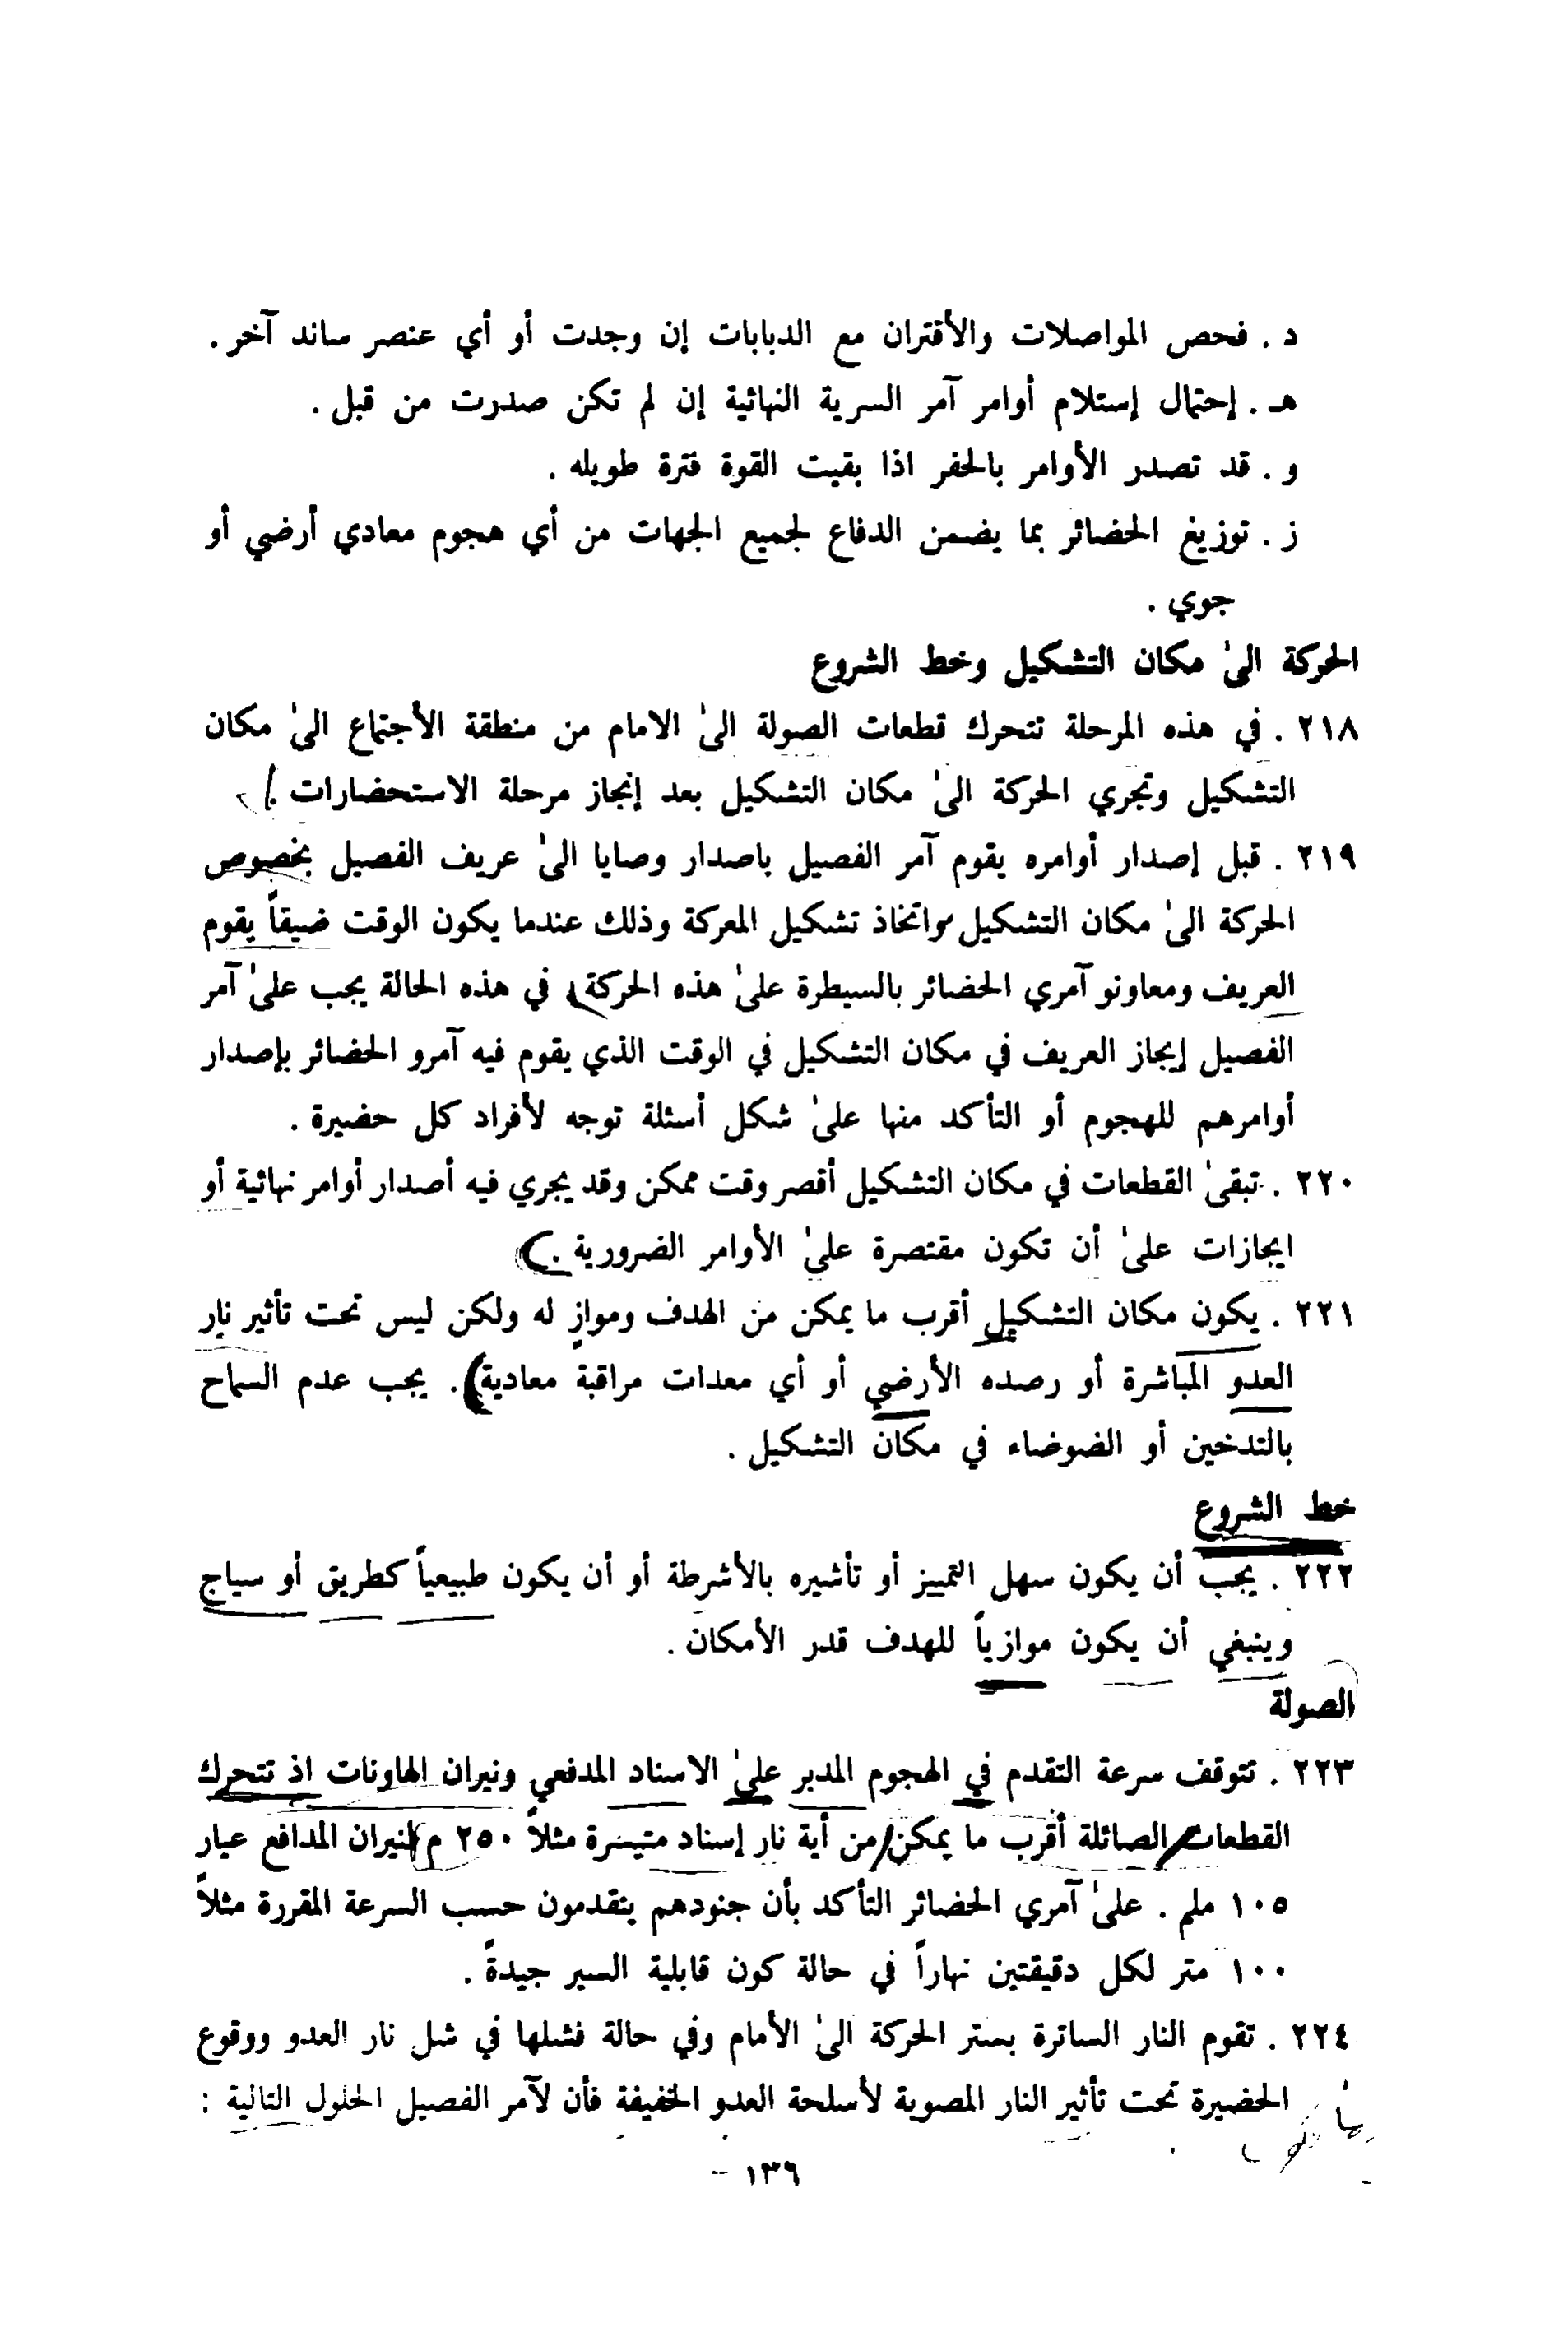 د . فحص المواصلات والأقتران مع الدبابات إن وجدت أو أي عنصر ساند آخر .
هـ . إحتمال إستلام أوامر آمر السرية النهائية إن لم تكن صدرت من قبل .
و . قد تصدر الأوامر بالحفر اذا بقيت القوة فترة طويله .
ز . توزيغ الحضائر بما يضمن الدفاع لجميع الجهات من أي هجوم معادي أرضي أو
جوي .
الحركة الىٰ مكان التشكيل وخط الشروع
٢١٨ . في هذه المرحلة تتحرك قطعات الصولة الىٰ الامام من منطقة الأجتماع الىٰ مكان
التشكيل وتجري الحركة الىٰ مكان التشكيل بعد إنجاز مرحلة الاستحضارات .
٢١٩ . قبل إصدار أوامره يقوم آمر الفصيل باصدار وصايا الىٰ عريف الفصيل بخصوص
الحركة الىٰ مكان التشكيل واتخاذ تشكيل المعركة وذلك عندما يكون الوقت ضيقاً يقوم
العريف ومعاونو آمري الحضائر بالسيطرة علىٰ هذه الحركة في هذه الحالة يجب علىٰ آمر
الفصيل إيجاز العريف في مكان التشكيل في الوقت الذي يقوم فيه آمرو الحضائر بإصدار
أوامرهم للهجوم أو التأكد منها علىٰ شكل أسئلة توجه لأفراد كل حضيرة .
٢٢٠ . تبقىٰ القطعات في مكان التشكيل أقصر وقت ممكن وقد يجري فيه أصدار أوامر نهائية أو
ايجازات علىٰ أن تكون مقتصرة علىٰ الأوامر الضرورية .
٢٢١ . يكون مكان التشكيل أقرب ما يمكن من الهدف وموازٍ له ولكن ليس تحت تأثير نار
العدو المباشرة أو رصده الأرضي أو أي معدات مراقبة معادية . يجب عدم السماح
بالتدخين أو الضوضاء في مكان التشكيل .
خط الشروع
٢٢٢ . يجب أن يكون سهل التمييز أو تأشيره بالأشرطة أو أن يكون طبيعياً كطريق أو سياج
وينبغي أن يكون موازياً للهدف قدر الأمكان .
الصولة
٢٢٣ . تتوقف سرعة التقدم في الهجوم المدبر علىٰ الاسناد المدفعي ونيران الهاونات اذ تتحرك
القطعات الصائلة أقرب ما يمكن من أية نار إسناد متيسرة مثلاً ٢٥٠ م لنيران المدافع عيار
١٠٥ ملم . علىٰ آمري الحضائر التأكد بأن جنودهم يتقدمون حسب السرعة المقررة مثلاً
١٠٠ متر لكل دقيقتين نهاراً في حالة كون قابلية السير جيدةً .
٢٢٤ . تقوم النار الساترة بستر الحركة الىٰ الأمام وفي حالة فشلها في شل نار العدو ووقوع
الحضيرة تحت تأثير النار المصوبة لأسلحة العدو الخفيفة فأن لآمر الفصيل الحلول التالية :
١٣٦ -